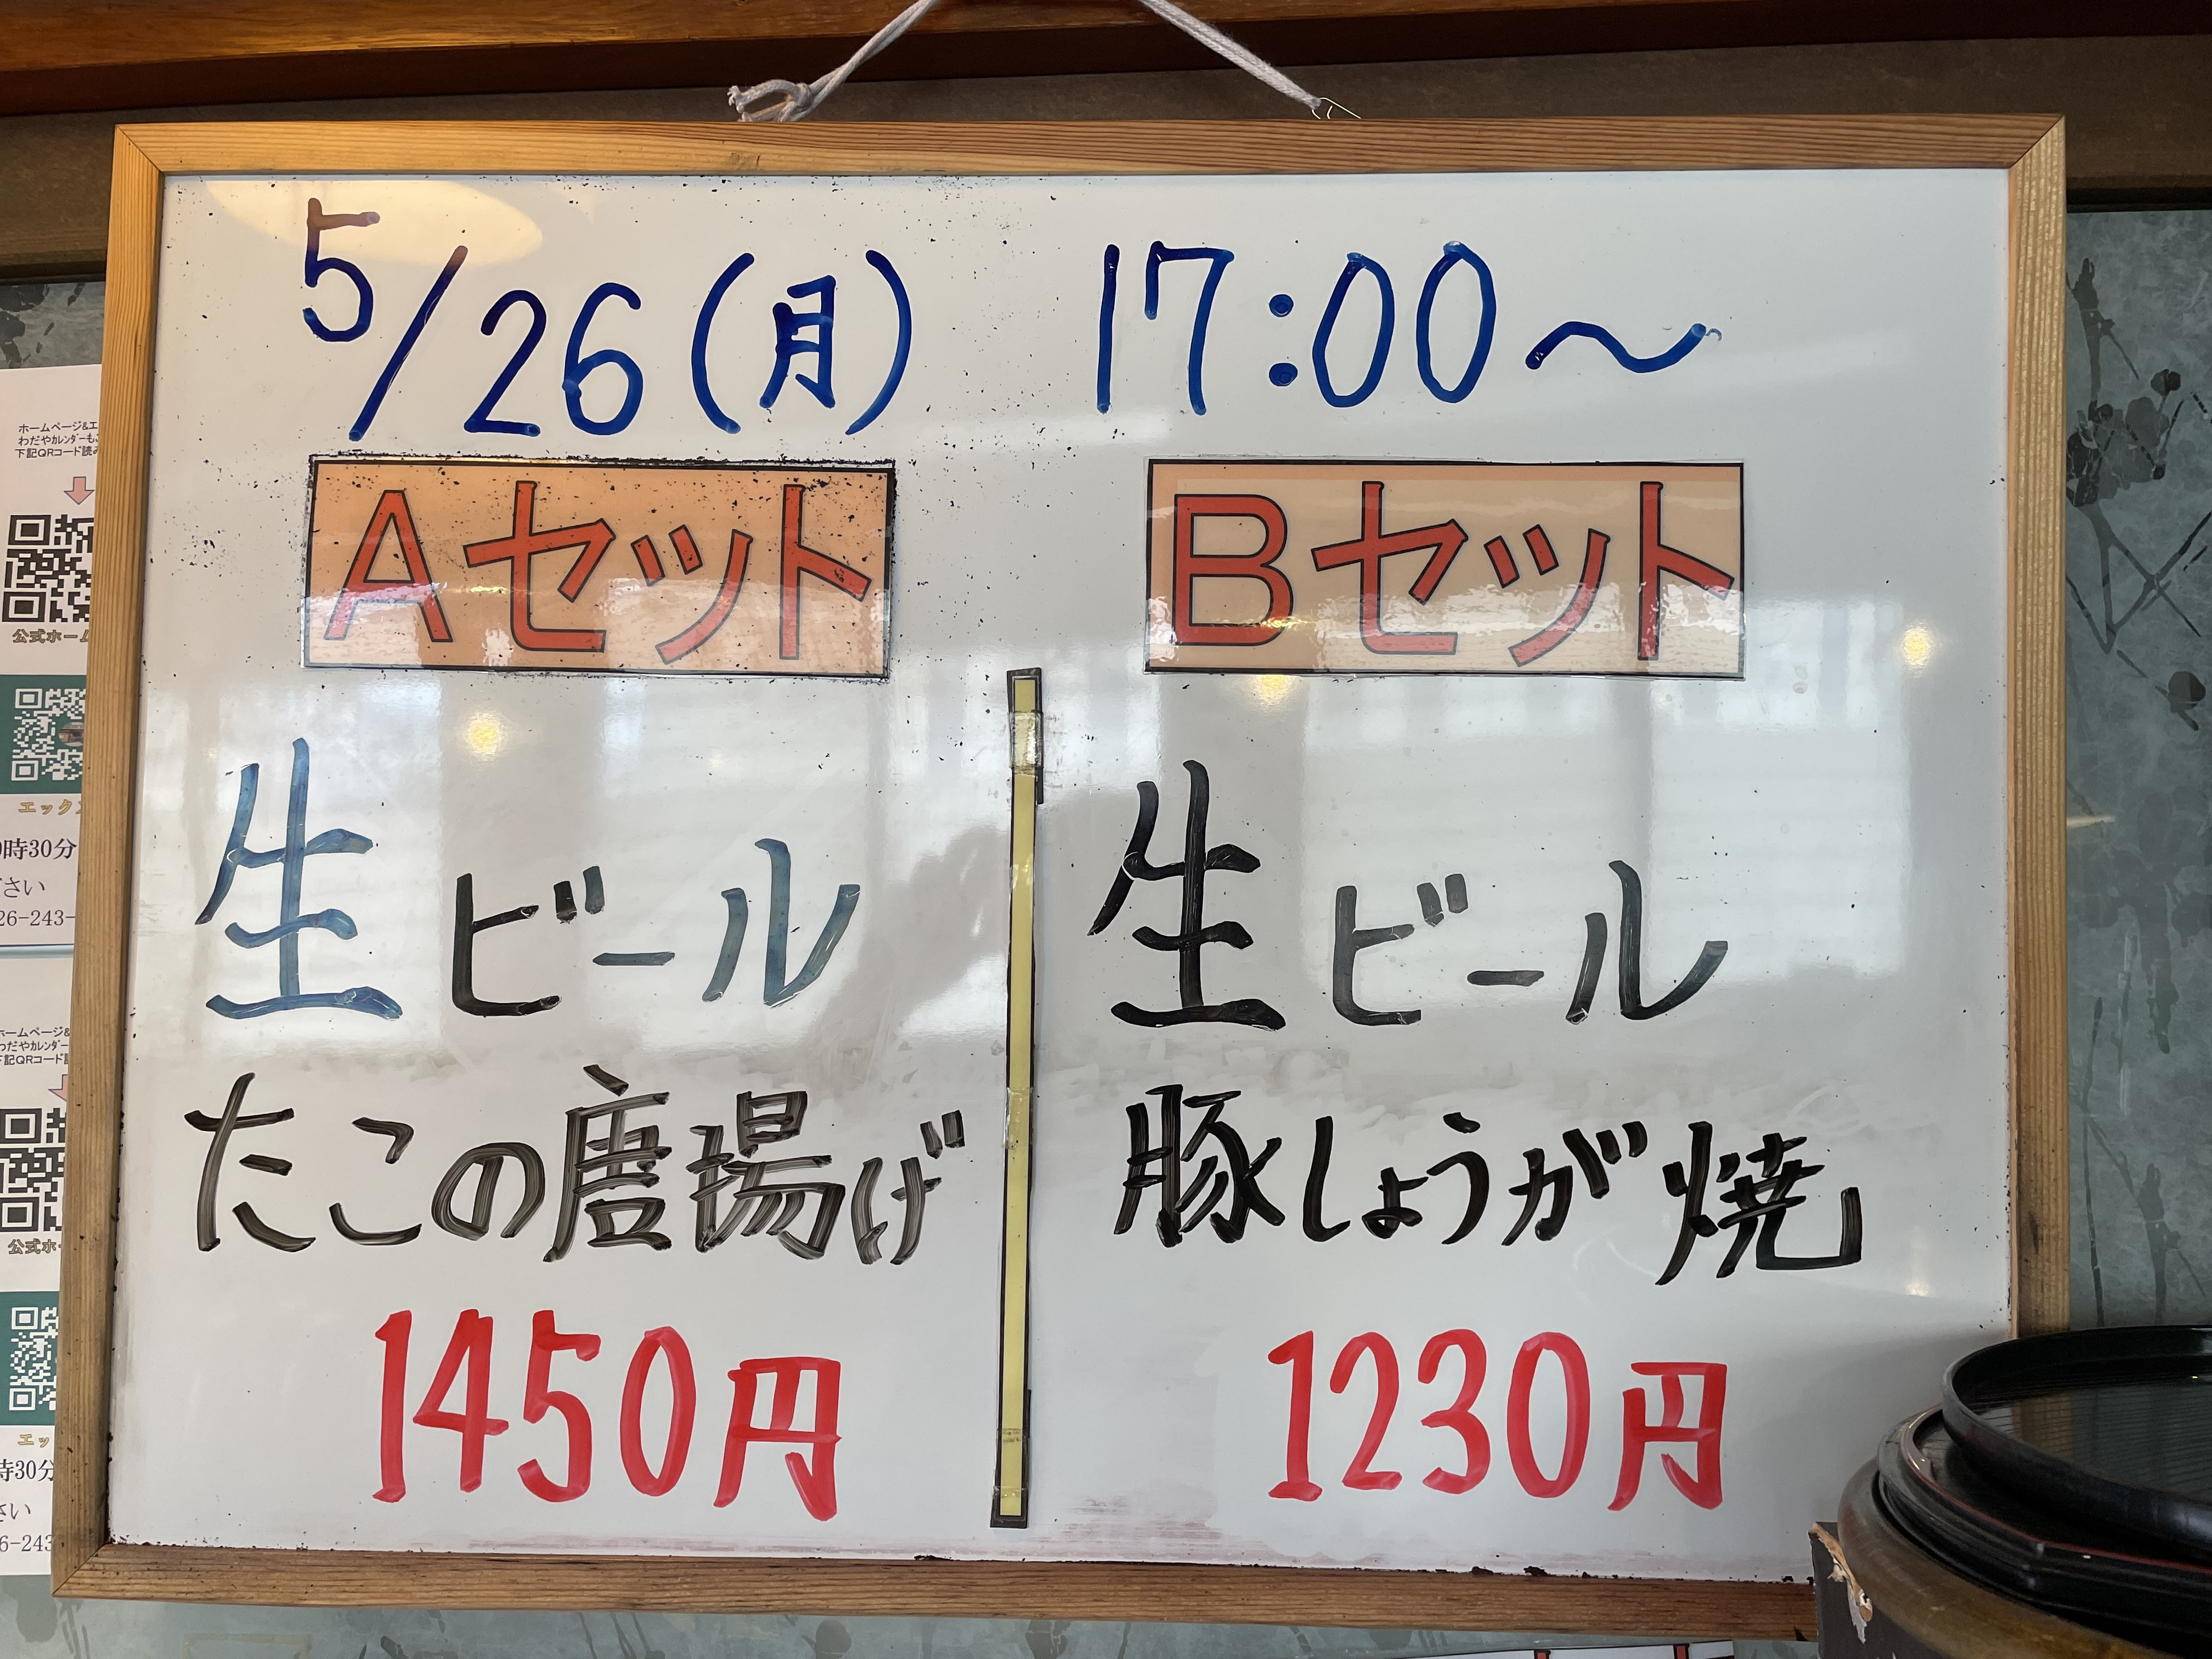 5/26(月) 17:00～
Aセット
生ビール
たこの唐揚げ
1450円
Bセット
生ビール
豚しょうが焼
1230円
ホームページ&エ
わだやカレンダーも
下記QRコード読み
公式ホーム
エックス
時30分
さい
26-243-
ホームページ&
わだやカレンダー
下記QRコード
公式ホ
エッ
時30分
さい
6-243